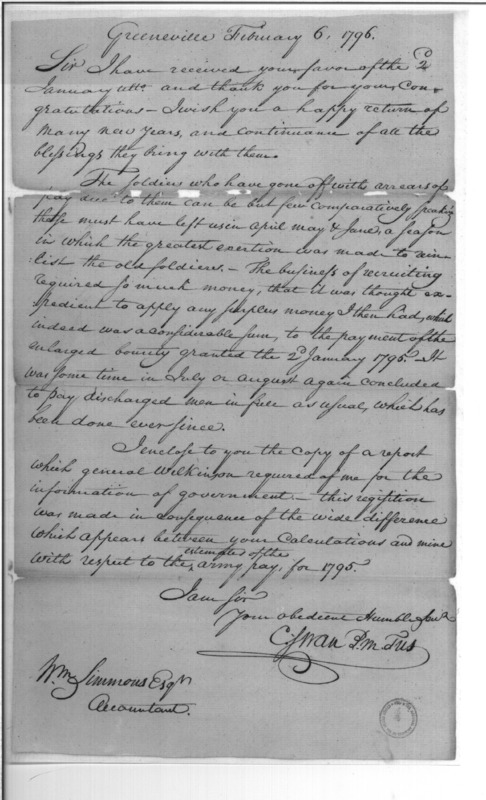 Greeneville February 6, 1796.
Sir I have received your favor of the 2d
January ulto. and thank you for your Con-
gratulations – I wish you a happy return of
many new Years, and continuance of all the
blessings they bring with them.
The soldiers who have gone off with arrears of
pay due to them can be but few comparatively speaking
those must have left us in April May & June, a season
in which the greatest exertion was made to rein-
list the old soldiers. – The business of recruiting
required so much money, that it was thought ex-
pedient to apply any surpless money I then had, which
indeed was a considerable sum, to the payment of the
enlarged bounty granted the 2d January 1795. – It
was some time in July or august again concluded
to pay discharged men in full as usual, which has
been done ever since.
I enclose to you the Copy of a report
which general Wilkinson required of me for the
information of government – this
was made in consequence of the wide difference
which appears between your Calculations and mine
with respect to the estimates of the army pay, for 1795.
I am Sir
Your obedient Humble Servt
C Swan P.M. Tus
Wm Simmons Esqr
Accountant.